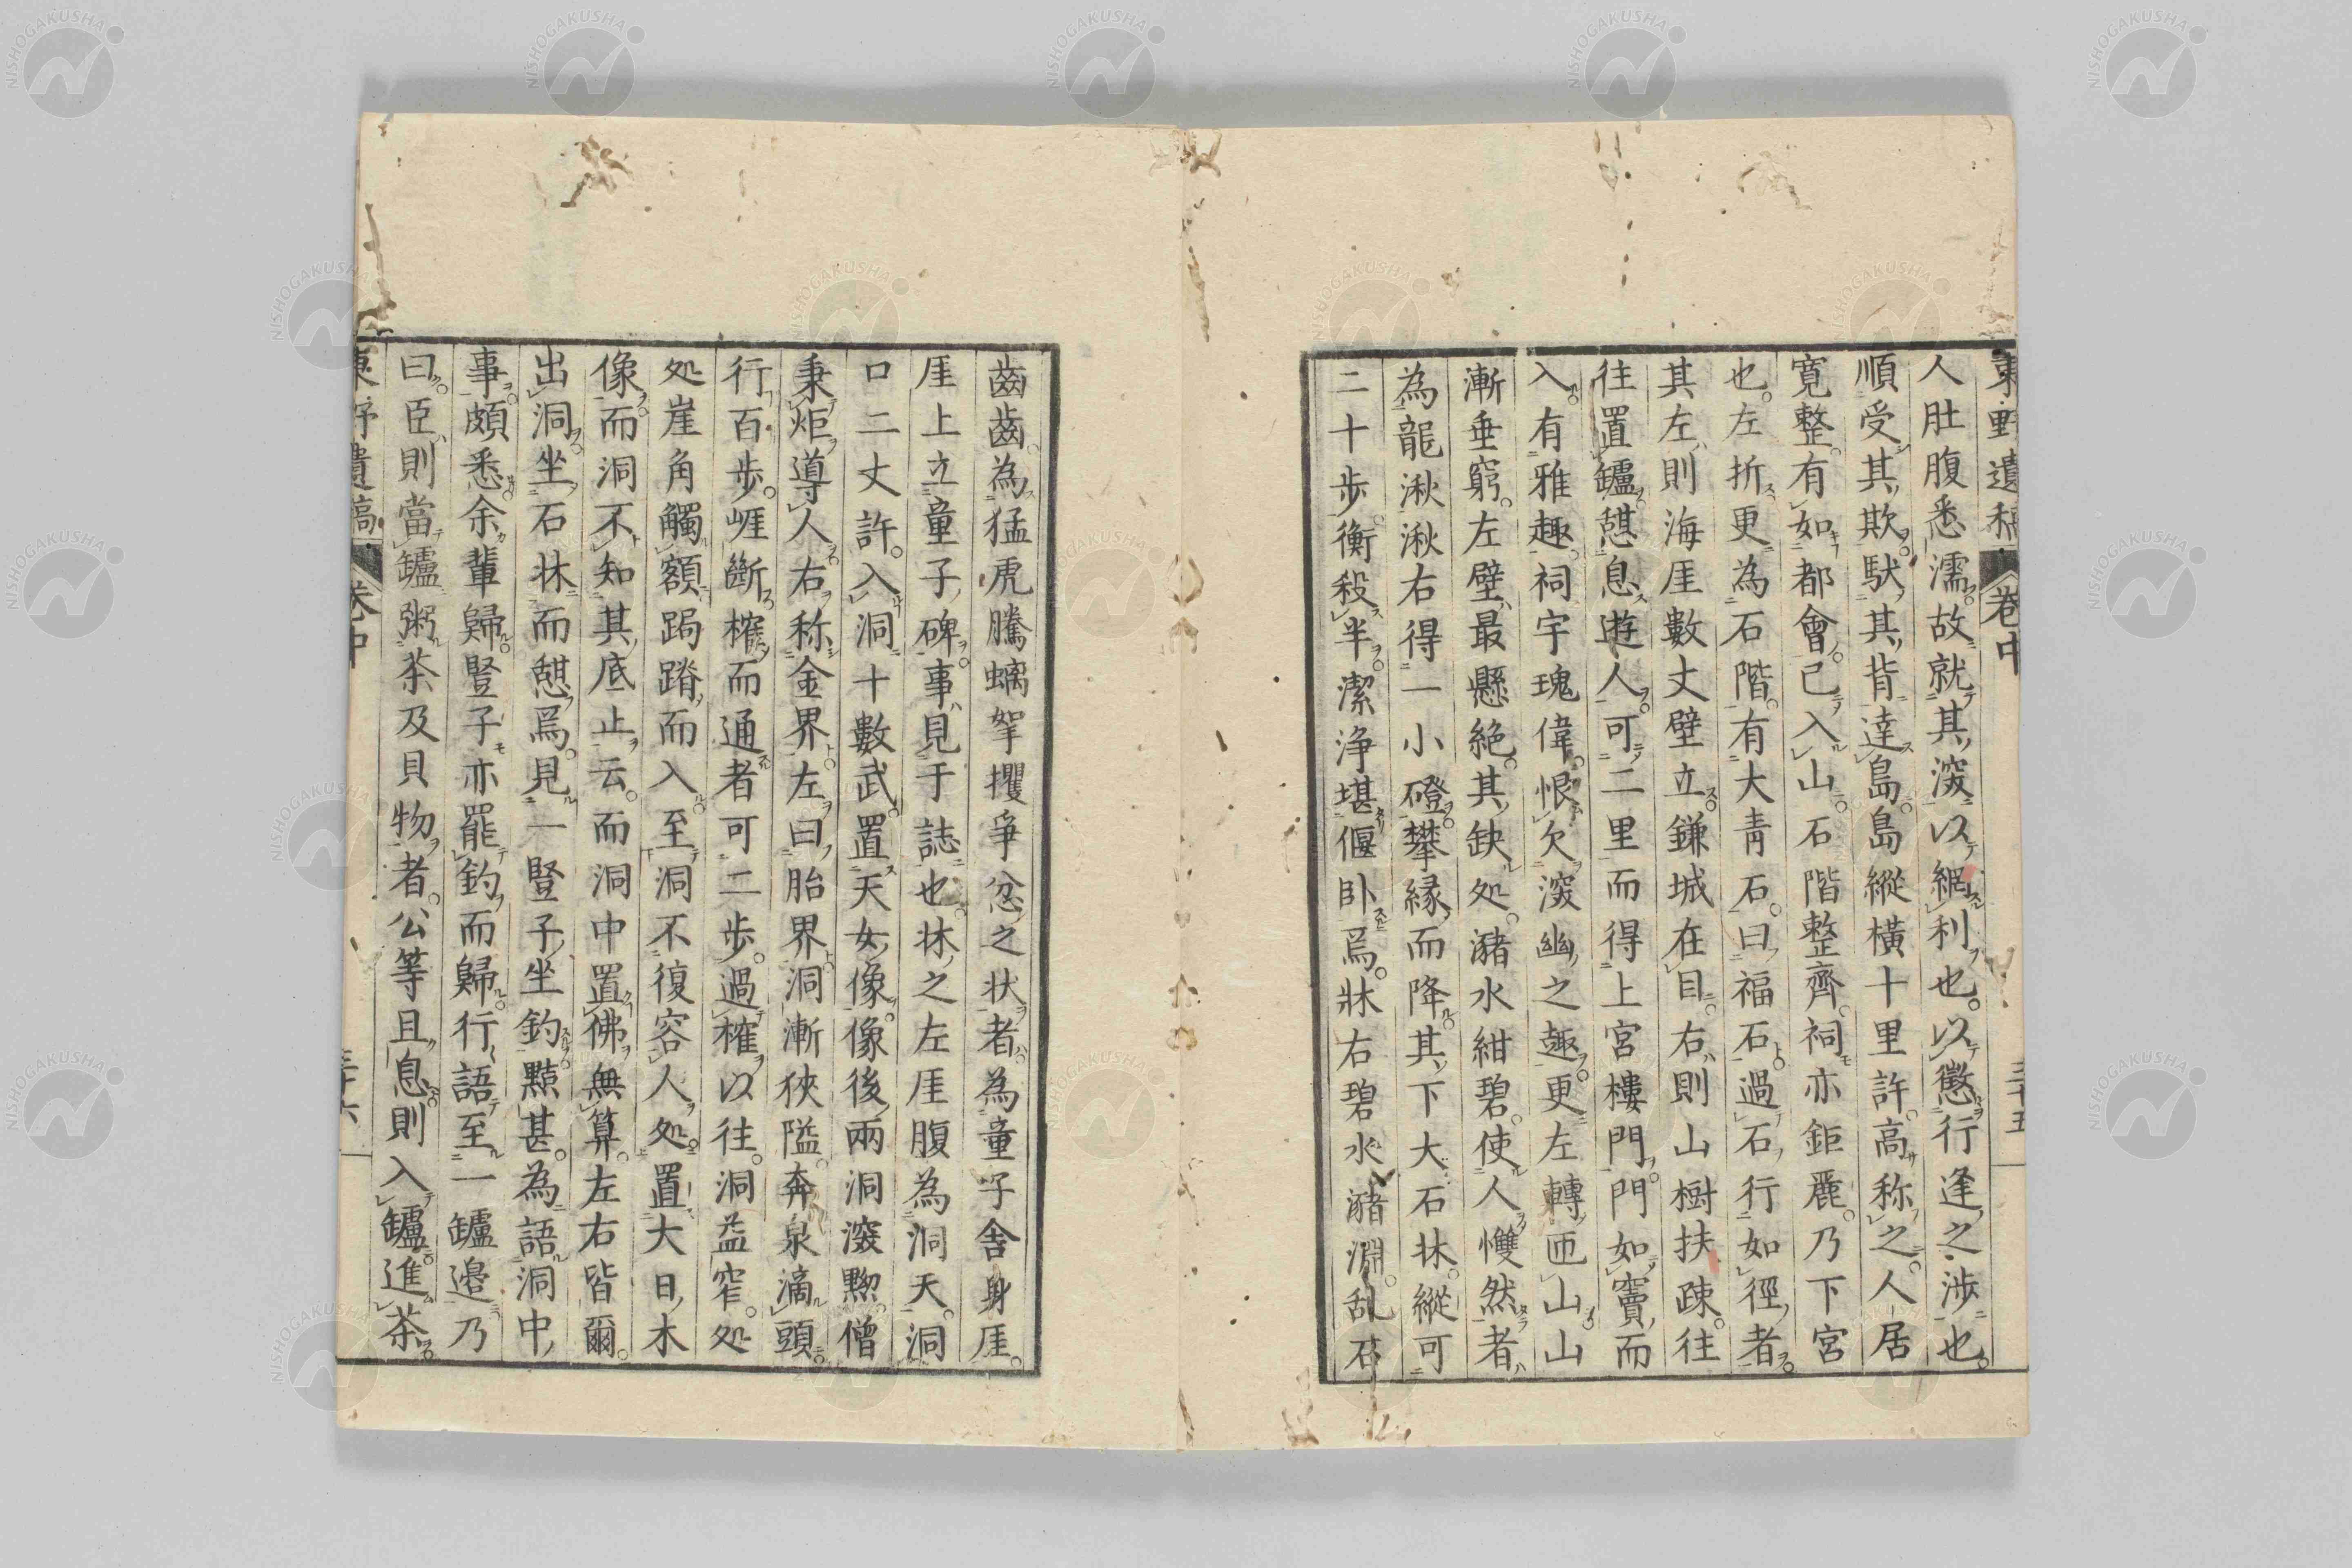 東野遺稿 卷中 三十五
人肚腹悉濡故就其深以網利也以懲行逢之涉也
順受其欺馱其背達島島縱橫十里許高称之人居
寬整有如都會已入山石階整齊祠亦鉅麗乃下宮
也左折更為石階有大青石曰福石過石行如徑者
其左則海厓數丈壁立鎌城在目右則山樹扶疎往
往置罏憩息遊人可二里而得上宮樓門門如竇而
入有雅趣祠宇瑰偉恨欠深幽之趣更左轉匝山山
漸垂窮左壁最懸絕其缺処瀦水紺碧使人戄然者
為龍湫湫右得一小磴攀緣而降其下大石牀縱可
二十步衡殺半潔淨堪偃卧焉牀右碧水瀦淵乱石
齒齒為猛虎騰螭挐攫爭忿之状者為童子舍身厓
厓上立童子碑事見于誌也牀之左厓腹為洞天洞
口二丈許入洞十數武置天女像像後兩洞深黝僧
秉炬導人右称金界左曰胎界洞漸狹隘奔泉滴頭
行百步崕斷榷而通者可二步過榷以往洞益窄処
処崖角觸額跼蹐而入至洞不復容人処置大日木
像而洞不知其底止云而洞中置佛無算左右皆爾
出洞坐石牀而憩焉見一豎子坐釣黠甚為語洞中
事頗悉余輩歸豎子亦罷釣而歸行語至一罏邉乃
曰臣則當罏粥茶及貝物者公等且息則入罏進茶
東野遺稿 卷中 三十六
NISHOGAKUSHA